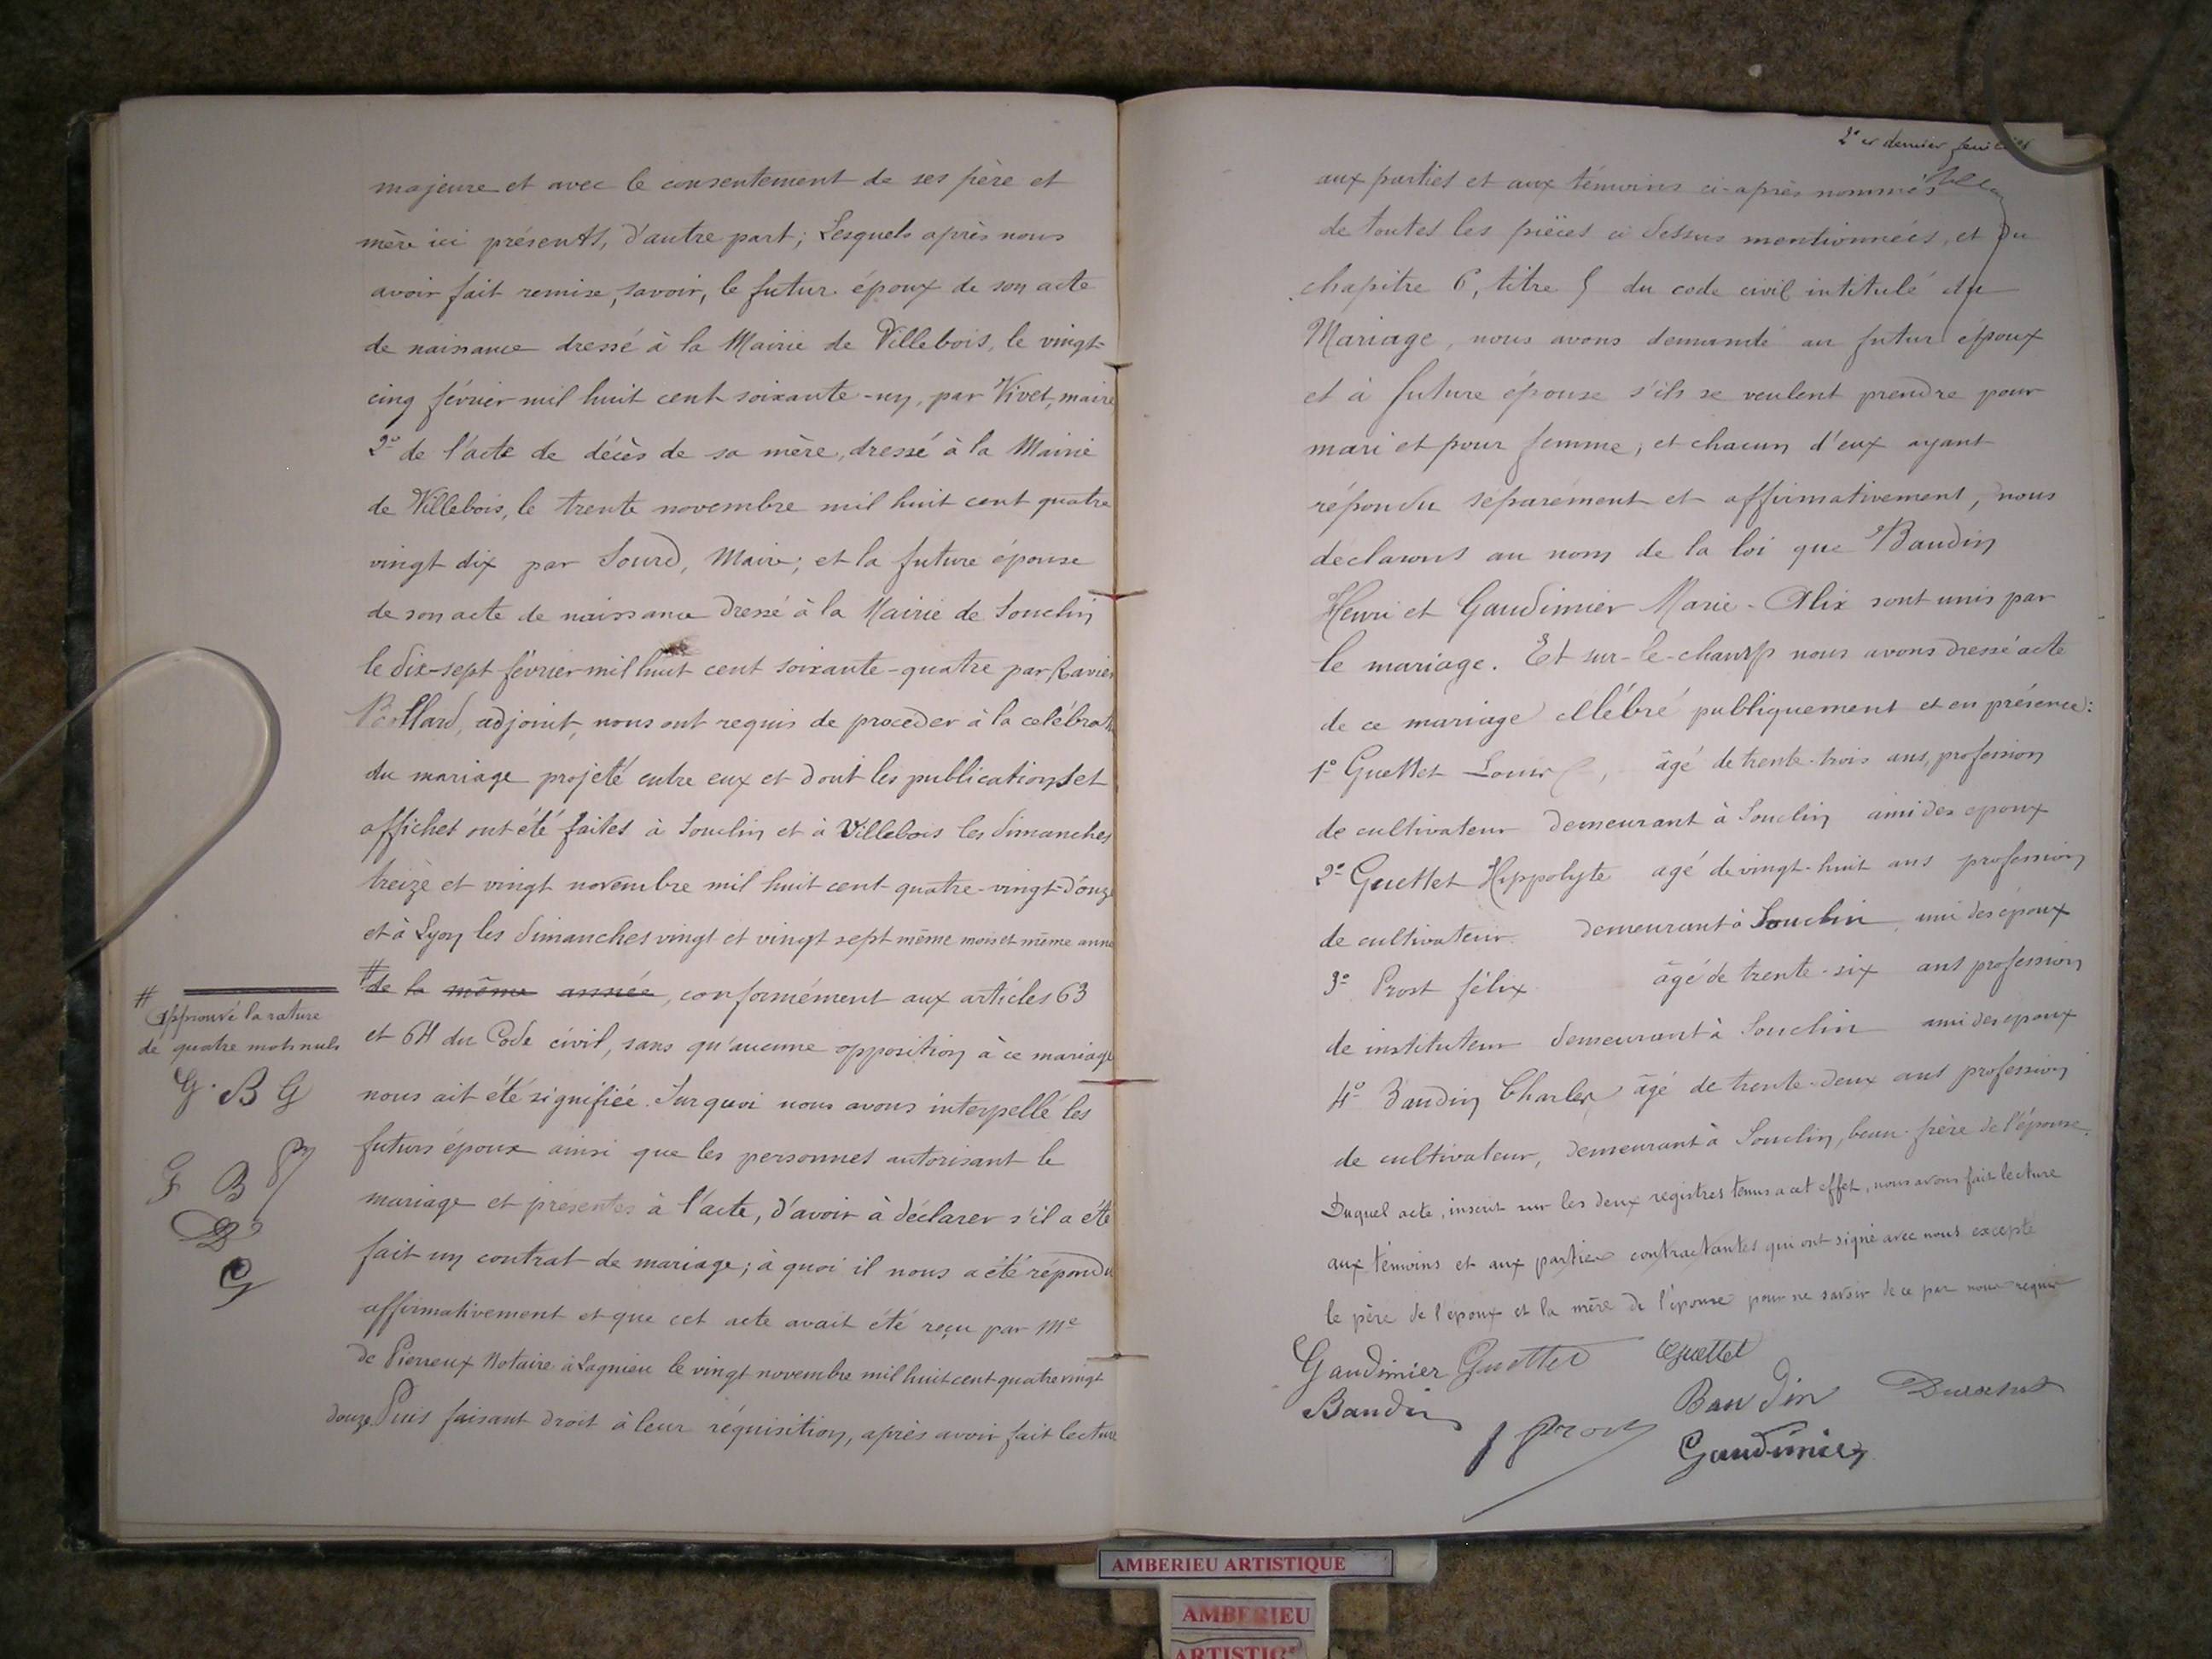 majeure et avec le consentement de ses père et
mère ici présents, d'autre part; Lesquels après nous
avoir fait remise, savoir, le futur époux de son acte
de naissance dressé à la Mairie de Villebois, le vingt-
cinq février mil huit cent soixante-un, par Vivet, maire
2º de l'acte de décès de sa mère, dressé à la Mairie
de Villebois, le trente novembre mil huit cent quatre
vingt dix par Sourd, Maire; et la future épouse
de son acte de naissance dressé à la Mairie de Souclin
le dix-sept février mil huit cent soixante-quatre par Ravier
Bollard, adjoint, nous ont requis de procéder à la celébrat
du mariage projeté entre eux et dont les publications et
affiches ont été faites à Souclin et à Villebois les dimanches
treize et vingt novembre mil huit cent quatre-vingt-douze
et à Lyon les dimanches vingt et vingt sept même mois et même anné
# de la même année, conformément aux articles 63
et 64 du Code civil, sans qu'aucune opposition à ce mariage
nous ait été signifiée. Sur quoi nous avons interpellé les
futurs époux ainsi que les personnes autorisant le
mariage et présentes à l'acte, d'avoir à déclarer s'il a été
fait un contrat de mariage; à quoi il nous a été répondu
affirmativement et que cet acte avait été reçu par Me
de Pierreux Notaire à Lagnieu le vingt novembre mil huit cent quatre vingt
douze. Puis faisant droit à leur réquisition, après avoir fait lecture
#
Approuvé la rature
de quatre mots nuls
G. B G
G B
B
G
2e et dernier feuillet
aux parties et aux témoins ci-après nommés
de toutes les pièces ci dessus mentionnées, et du
chapitre 6, titre 5 du code civil intitulé du
Mariage, nous avons demandé au futur époux
et à future épouse s'ils se veulent prendre pour
mari et pour femme; et chacun d'eux ayant
répondu séparément et affirmativement, nous
déclarons au nom de la loi que Baudin
Henri et Gaudimier Marie-Alix sont unis par
le mariage. Et sur-le-champ nous avons dressé acte
de ce mariage célébré publiquement et en présence:
1º Guettet Louis, âgé de trente-trois ans, profession
de cultivateur demeurant à Souclin ami des epoux
2º Guettet Hippolyte agé de vingt-huit ans profession
de cultivateur demeurant à Souclin, ami des époux
3º Prost félix âgé de trente-six ans profession
de instituteur demeurant à Souclin ami des époux
4º Baudin Charles âgé de trente-deux ans profession
de cultivateur, demeurant à Souclin, beau-frère de l'épouse.
Duquel acte, inscrit sur les deux registres tenus a cet effet, nous avons fait lecture
aux témoins et aux parties contractantes qui ont signé avec nous excepté
le père de l'époux et la mère de l'épouse pour ne savoir de ce par nous requis
Gaudimier Guettet Guettet
Baudin Baudin
Prost
Gaudimier
AMBERIEU ARTISTIQUE
AMBERIEU
ARTISTIQ